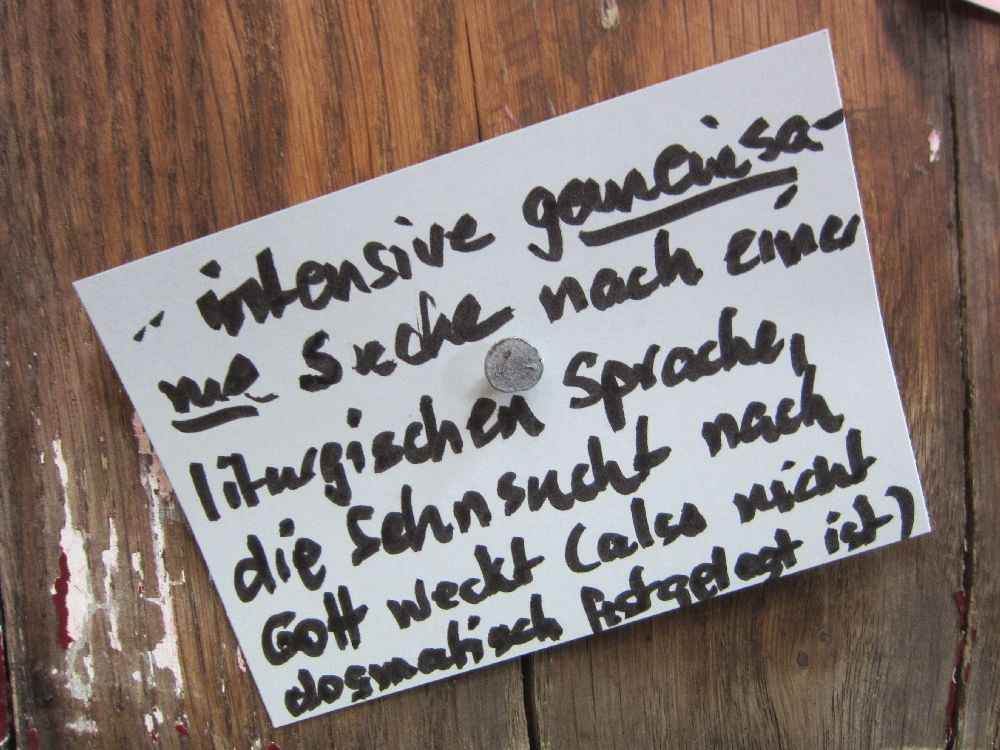 - intensive gemeinsa-
me Suche nach einer
liturgischen Sprache,
die Sehnsucht nach
Gott weckt (also nicht
dogmatisch festgelegt ist)